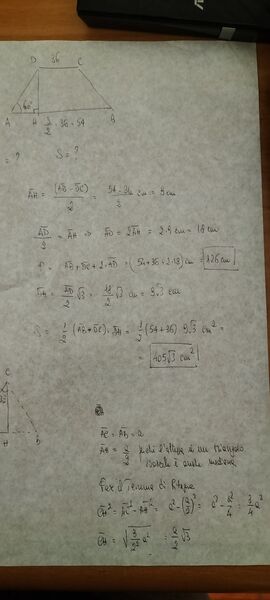 36
D C
60°
A H B
3/2 · 36 = 54
= ? S = ?
AH = (AB - DC)/2 = 54-36/2 cm = 9 cm
AD/2 = AH ⇒ AD = 2AH = 2·9 cm = 18 cm
= AB + DC + 2·AD = (54+36+2·18) cm = 126 cm
DH = AD/2 √3 = 18/2 √3 cm = 9√3 cm
S = 1/2 (AB + DC) · DH = 1/2 (54+36) 9√3 cm² =
= 405√3 cm²
C
H B
AC = AB = a
AH = a/2 poiché l'altezza di un triangolo
isoscele è anche mediana
Per il Teorema di Pitagora
CH² = AC² - AH² = a² - (a/2)² = a² - a²/4 = 3/4 a²
CH = √(3/2² a²) = a/2 √3